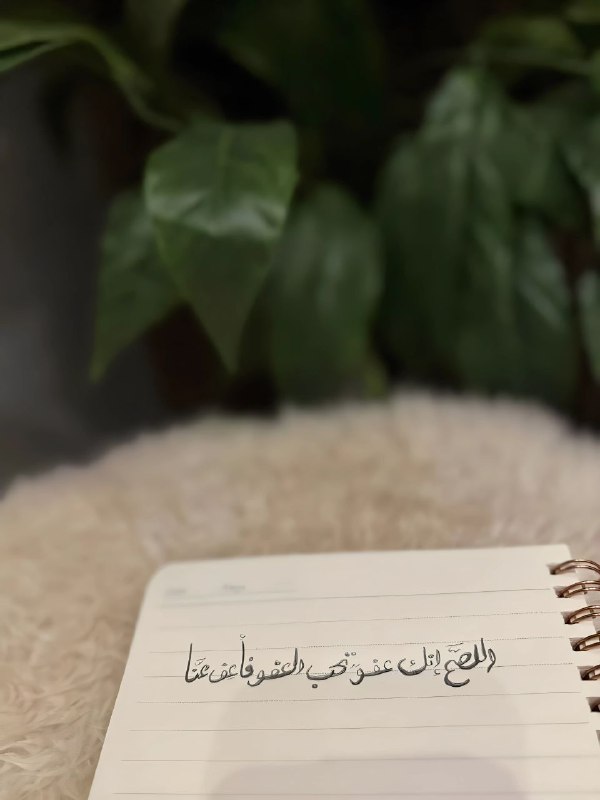 اللهم إنك عفوٌ تحب العفو فأعف عنَّا